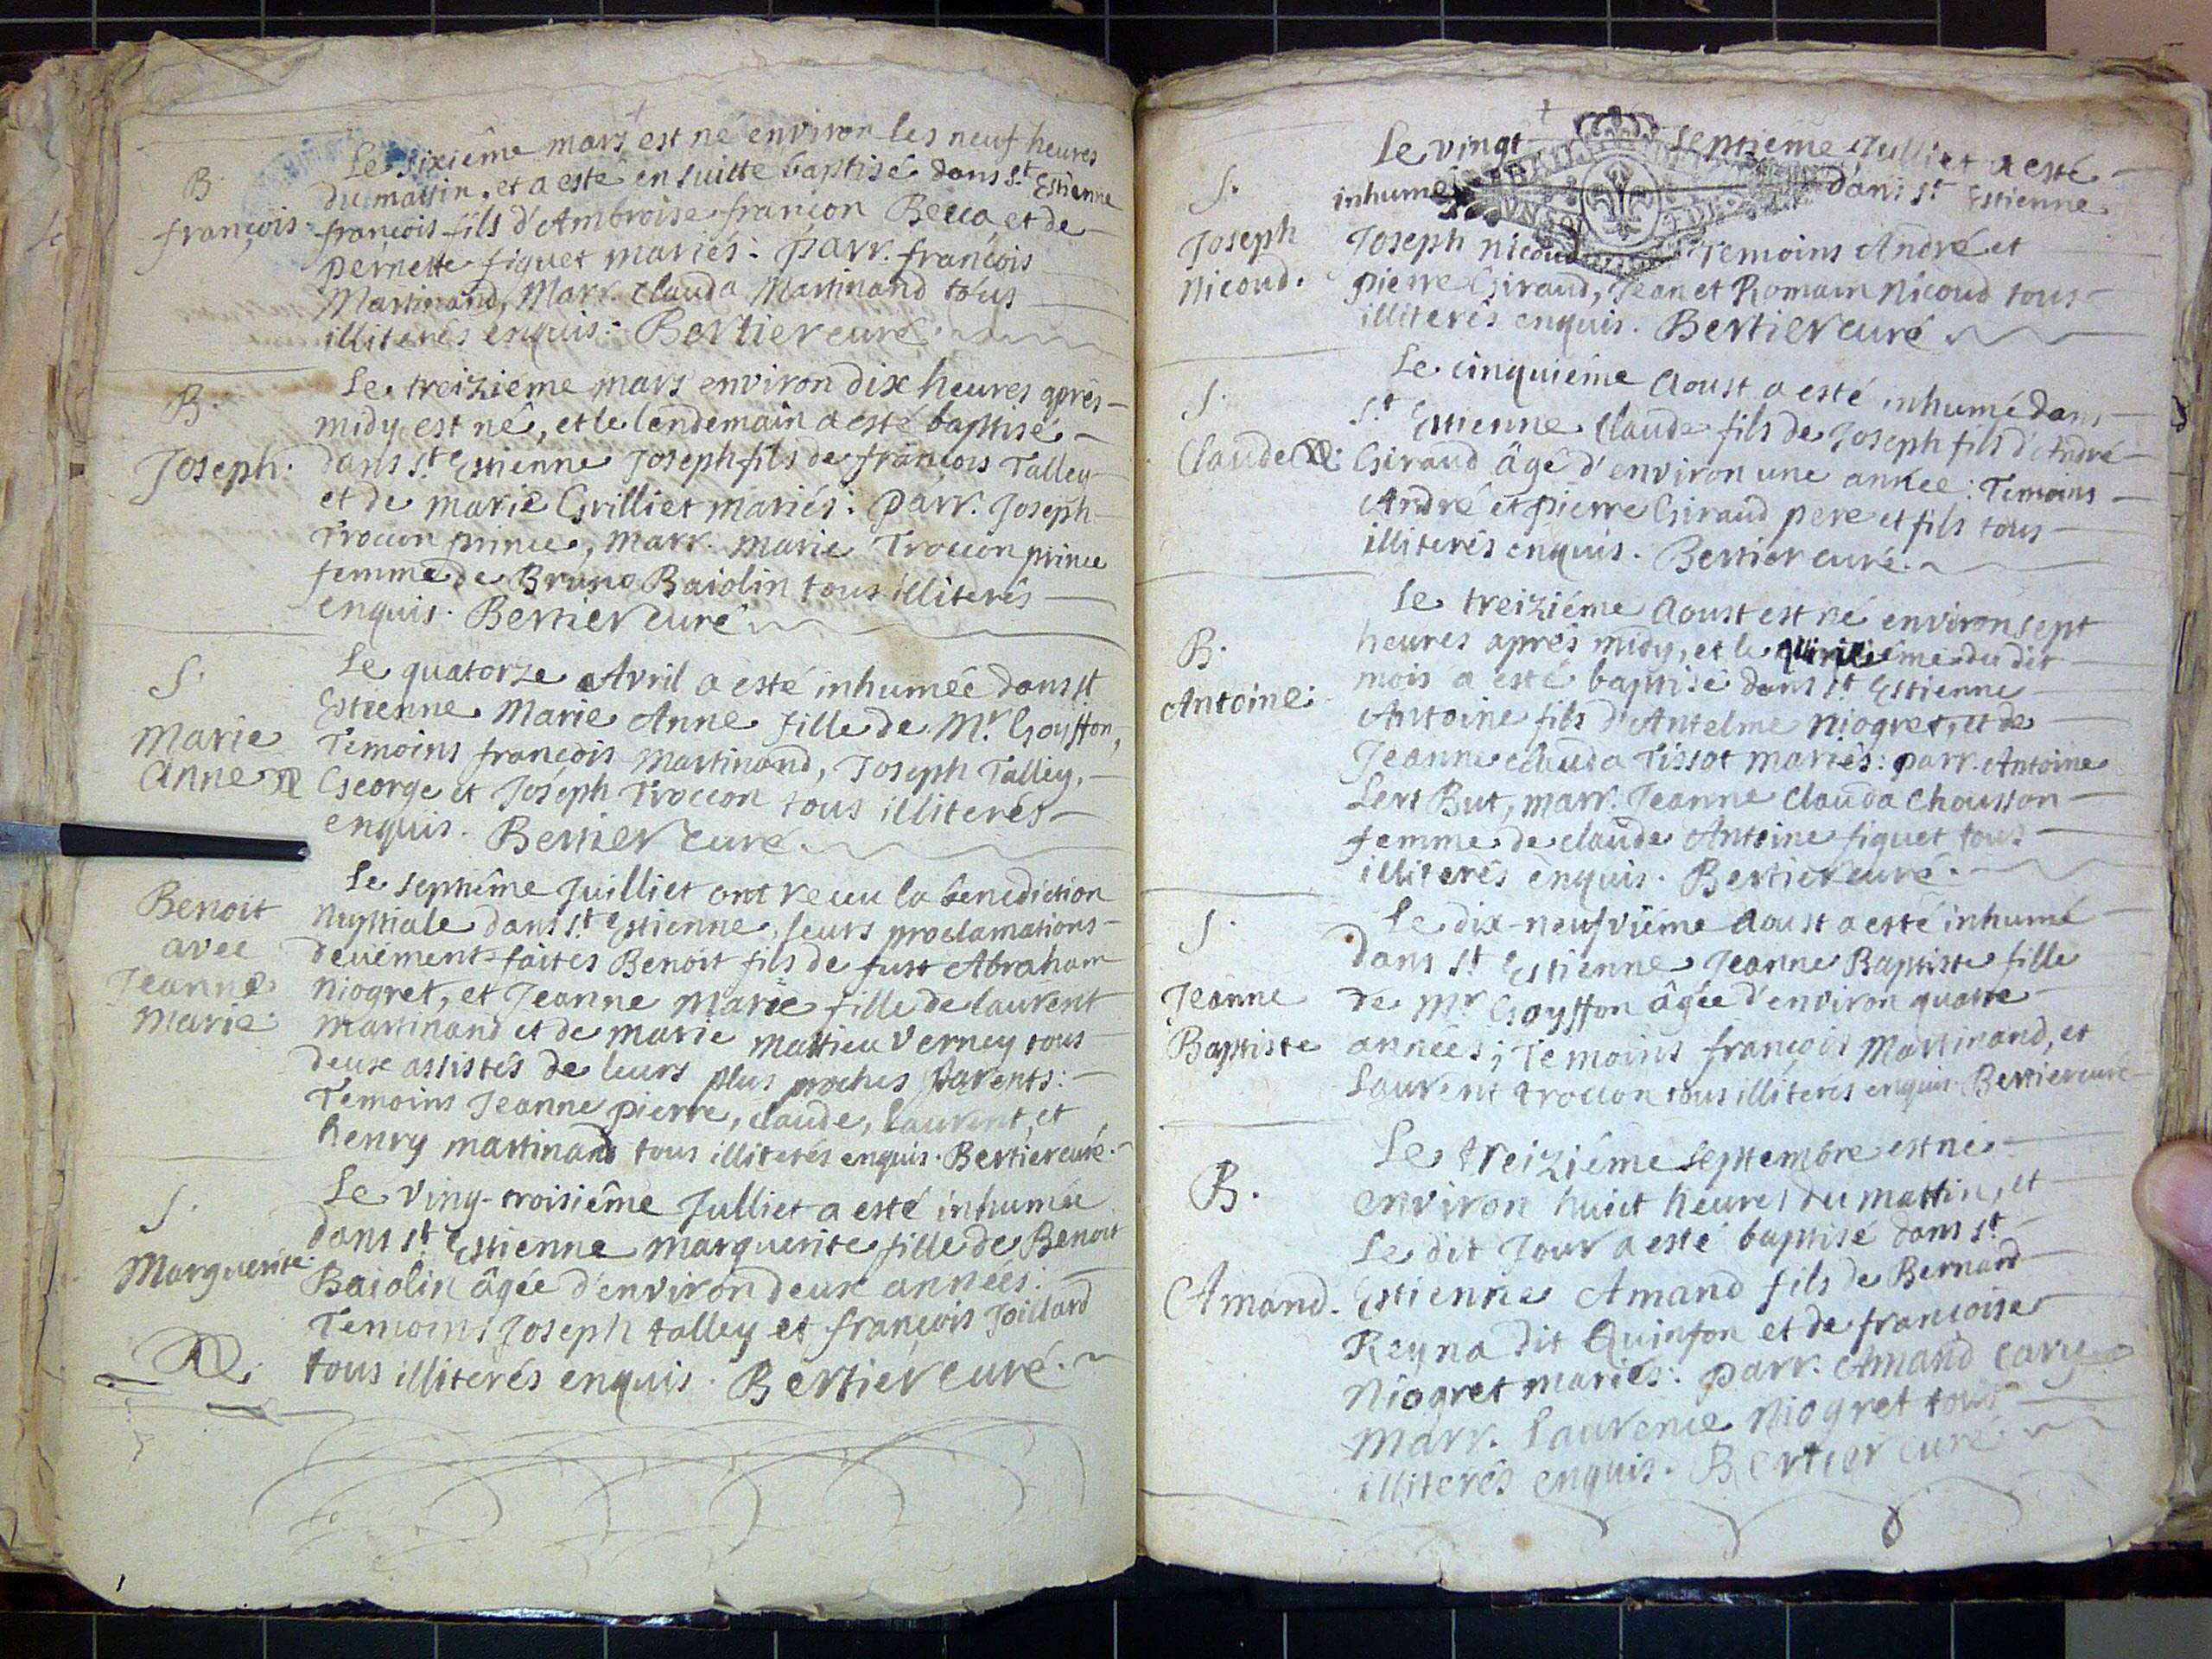 B.
françois.
Le sixiême mars est né environ les neuf heures
du mattin, et a esté en suitte baptisé dans S.t Estienne
françois fils d'Ambroise françon Becca et de
pernette figuet mariés: parr. françois
Martinand, Marr. Clauda Martinand tous
illiterés enquis. Bertier curé.
B.
Joseph.
Le treiziéme mars environ dix heures aprés
midy est né, et le lendemain a esté baptisé
dans S.t Estienne Joseph fils de françois Talley
et de marie Grilliet mariés: parr. Joseph
Troccon prince, Marr. Marie Troccon prince
femme de Bruno Baiolin tous illiterés
enquis. Bertier curé
S.
Marie
Anne
Le quatorze Avril a esté inhumée dans st
Estienne Marie Anne fille de M.r Goyffon,
Temoins françois Martinand, Joseph Talley,
George et Joseph Troccon tous illiterés
enquis. Bertier curé.
Benoit
avec
Jeanne
Marie.
Le septiême Juilliet ont receu la benediction
nuptiale dans S.t Estienne, leurs proclamations
deuëment faites Benoit fils de fust Abraham
Niogret, et Jeanne Marie fille de laurent
Martinand et de marie Mattieu Verney tous
deux assistés de leurs plus proches parents:
Temoins Jeanne pierre, claude, laurent, et
henry martinand tous illiterés enquis. Bertier curé.
S.
Marguerite.
Le ving-troisiême Julliet a esté inhumée
dans S.t Estienne Marguerite fille de Benoit
Baiolin âgée d'environ deux années.
Temoins Joseph talley et françois Joillard
tous illiterés enquis. Bertier curé.
S.
Joseph
Nicoud.
Le vingt septieme Julliet a esté
inhumé dans S.t Estienne
Joseph Nicoud Temoins André et
pierre Giraud, Jean et Romain Nicoud tous
illiterés enquis. Bertier curé
S.
Claude
Le cinquiéme Aoust a esté inhumé dans
S.t Estienne Claude fils de Joseph fils d'André
Giraud âgé d'environ une année: Temoins
André et pierre Giraud pere et fils tous
illiterés enquis. Bertier curé.
B.
Antoine.
Le treiziéme Aoust est né environ sept
heures aprés midy, et le du dit
mois a esté baptisé dans S.t Estienne
Antoine fils d'Antelme Niogret, et de
Jeanne clauda Tissot mariés: parr. Antoine
Lers But, marr. Jeanne Clauda Chousson
femme de claude Antoine figuet tous
illiterés enquis. Bertier curé.
S.
Jeanne
Baptiste
Le dix-neufviême Aoust a esté inhumé
dans S.t Estienne Jeanne Baptiste fille
de M.r Goyffon âgée d'environ quatre
années; Temoins françois Martinand, et
Laurent troccon tous illiterés enquis. Bertier curé
B.
Amand.
Le treiziême Septembre est né
environ huict heures du mattin, et
Le dit Jour a esté baptisé dans S.t
Estienne Amand fils de Bernard
Reyna dit Quinson et de françoise
Niogret mariés: parr. Amand Cary
Marr. Laurence Niogret tous
illiterés enquis. Bertier curé.